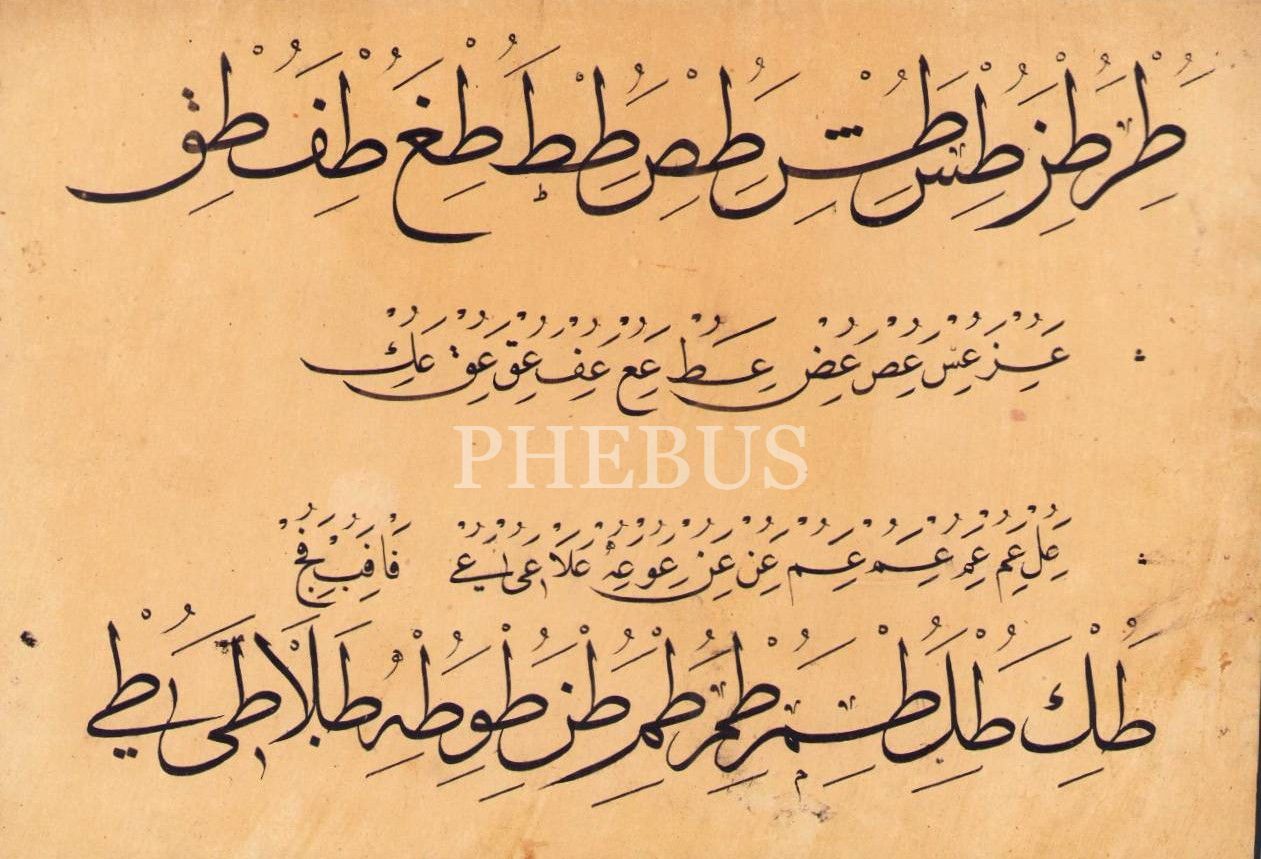 طر طز طس طش طص طط طغ طف طق
عز عس عص عض عط عع عف عق عق عك
PHEBUS
عل عم عم عم عم عن عن عو عه علا عى عے فا فب فج
طك طل طم طم طم طن طو طه طلا طى طے